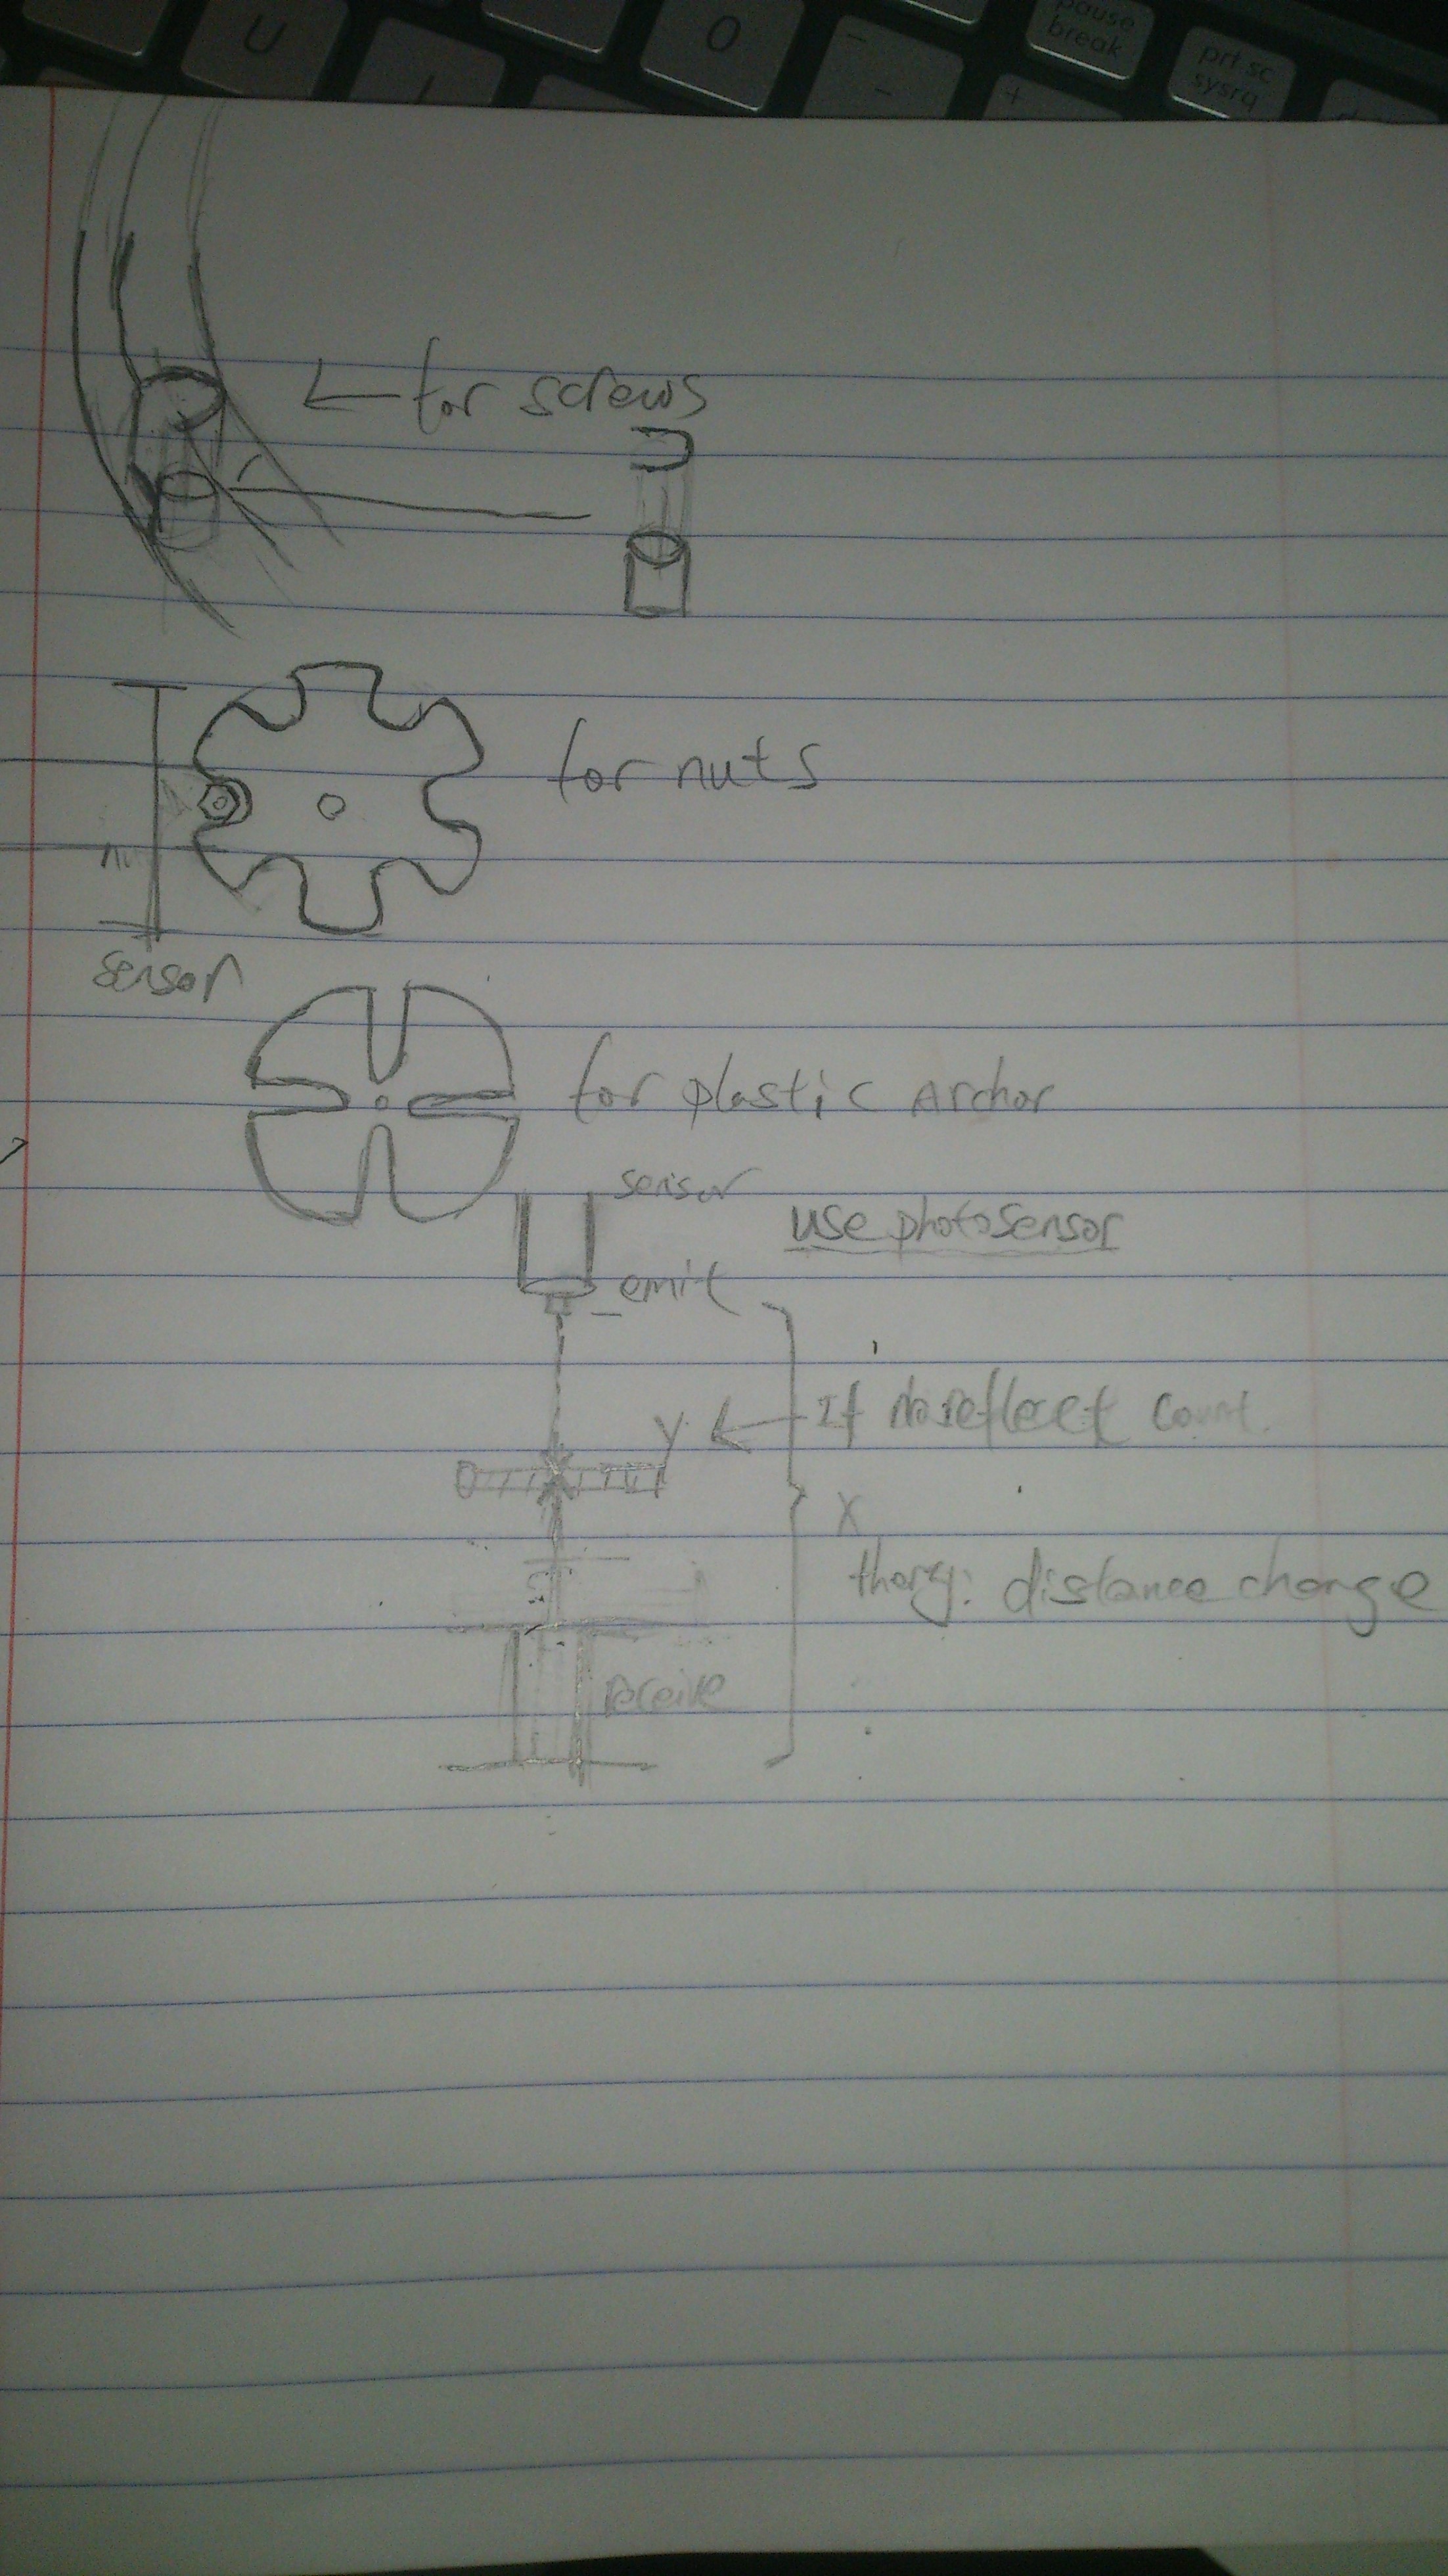 U
O
-
-
+
pause
break
prt sc
sysrq
for screws
for nuts
sensor
for plastic Archor
sensor
use photosensor
emit
Y
If no reflect count
X
thery: distance change
receive